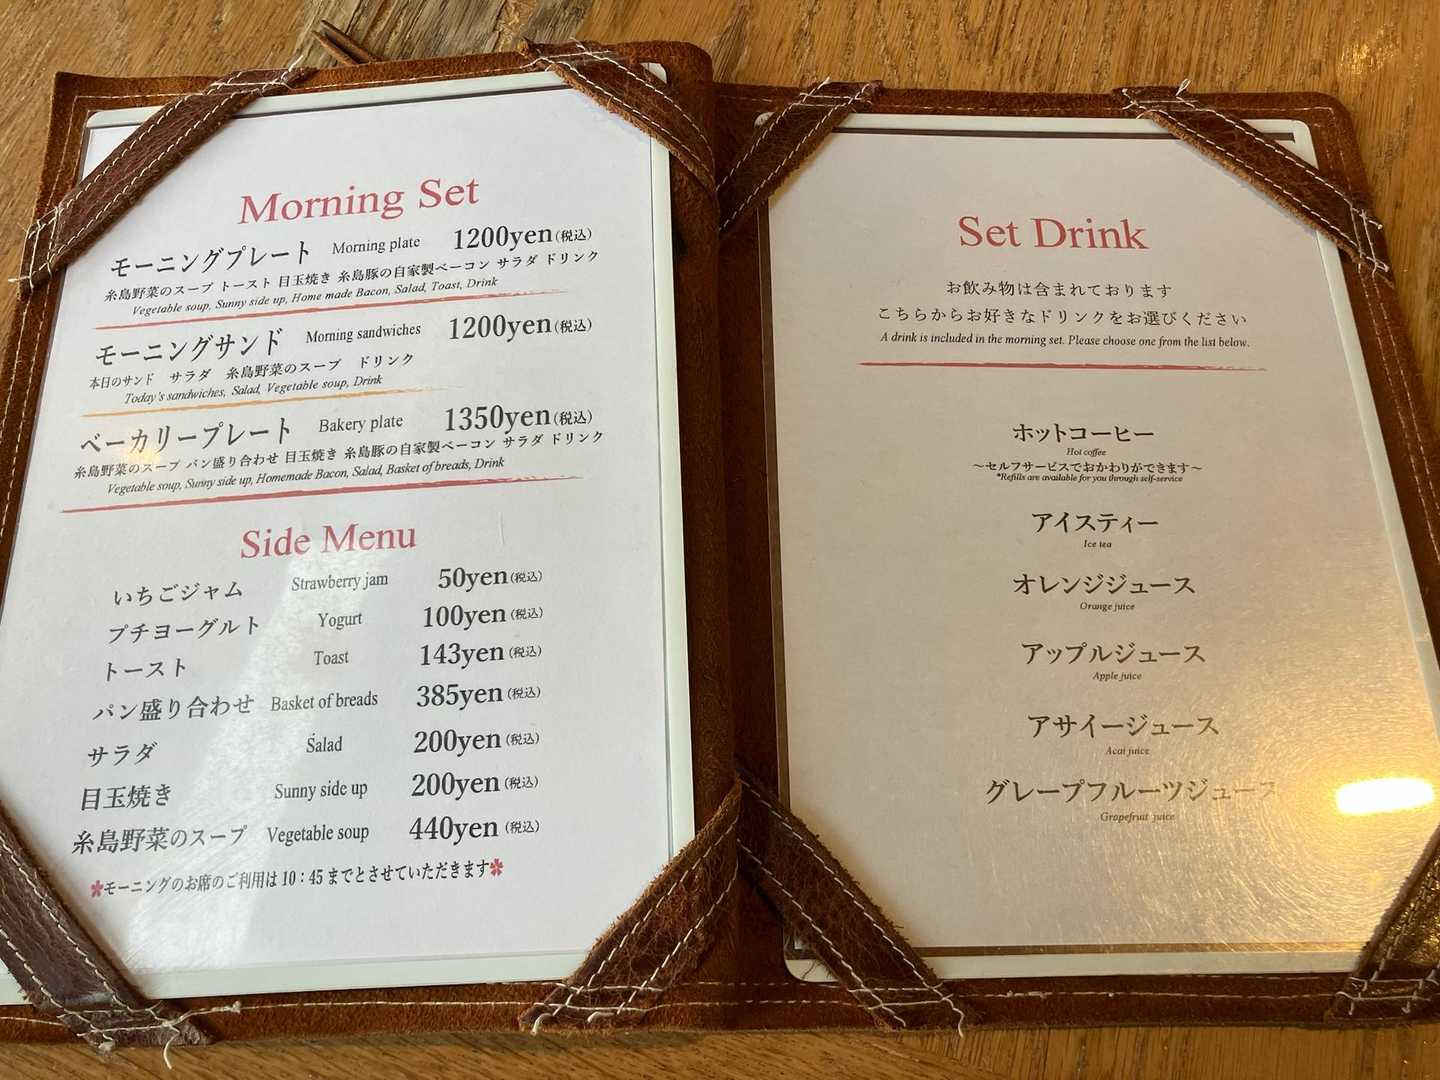 Morning Set
モーニングプレート Morning plate 1200yen(税込)
糸島野菜のスープ トースト 目玉焼き 糸島豚の自家製ベーコン サラダ ドリンク
Vegetable soup, Sunny side up, Home made Bacon, Salad, Toast, Drink
モーニングサンド Morning sandwiches 1200yen(税込)
本日のサンド サラダ 糸島野菜のスープ ドリンク
Today's sandwiches, Salad, Vegetable soup, Drink
ベーカリープレート Bakery plate 1350yen(税込)
糸島野菜のスープ パン盛り合わせ 目玉焼き 糸島豚の自家製ベーコン サラダ ドリンク
Vegetable soup, Sunny side up, Homemade Bacon, Salad, Basket of breads, Drink
Side Menu
いちごジャム Strawberry jam 50yen(税込)
プチヨーグルト Yogurt 100yen(税込)
トースト Toast 143yen(税込)
パン盛り合わせ Basket of breads 385yen(税込)
サラダ Salad 200yen(税込)
目玉焼き Sunny side up 200yen(税込)
糸島野菜のスープ Vegetable soup 440yen(税込)
✽モーニングのお席のご利用は 10:45 までとさせていただきます✽
Set Drink
お飲み物は含まれております
こちらからお好きなドリンクをお選びください
A drink is included in the morning set. Please choose one from the list below.
ホットコーヒー
Hot coffee
～セルフサービスでおかわりができます～
*Refills are available for you through self-service
アイスティー
Ice tea
オレンジジュース
Orange juice
アップルジュース
Apple juice
アサイージュース
Acai juice
グレープフルーツジュース
Grapefruit juice